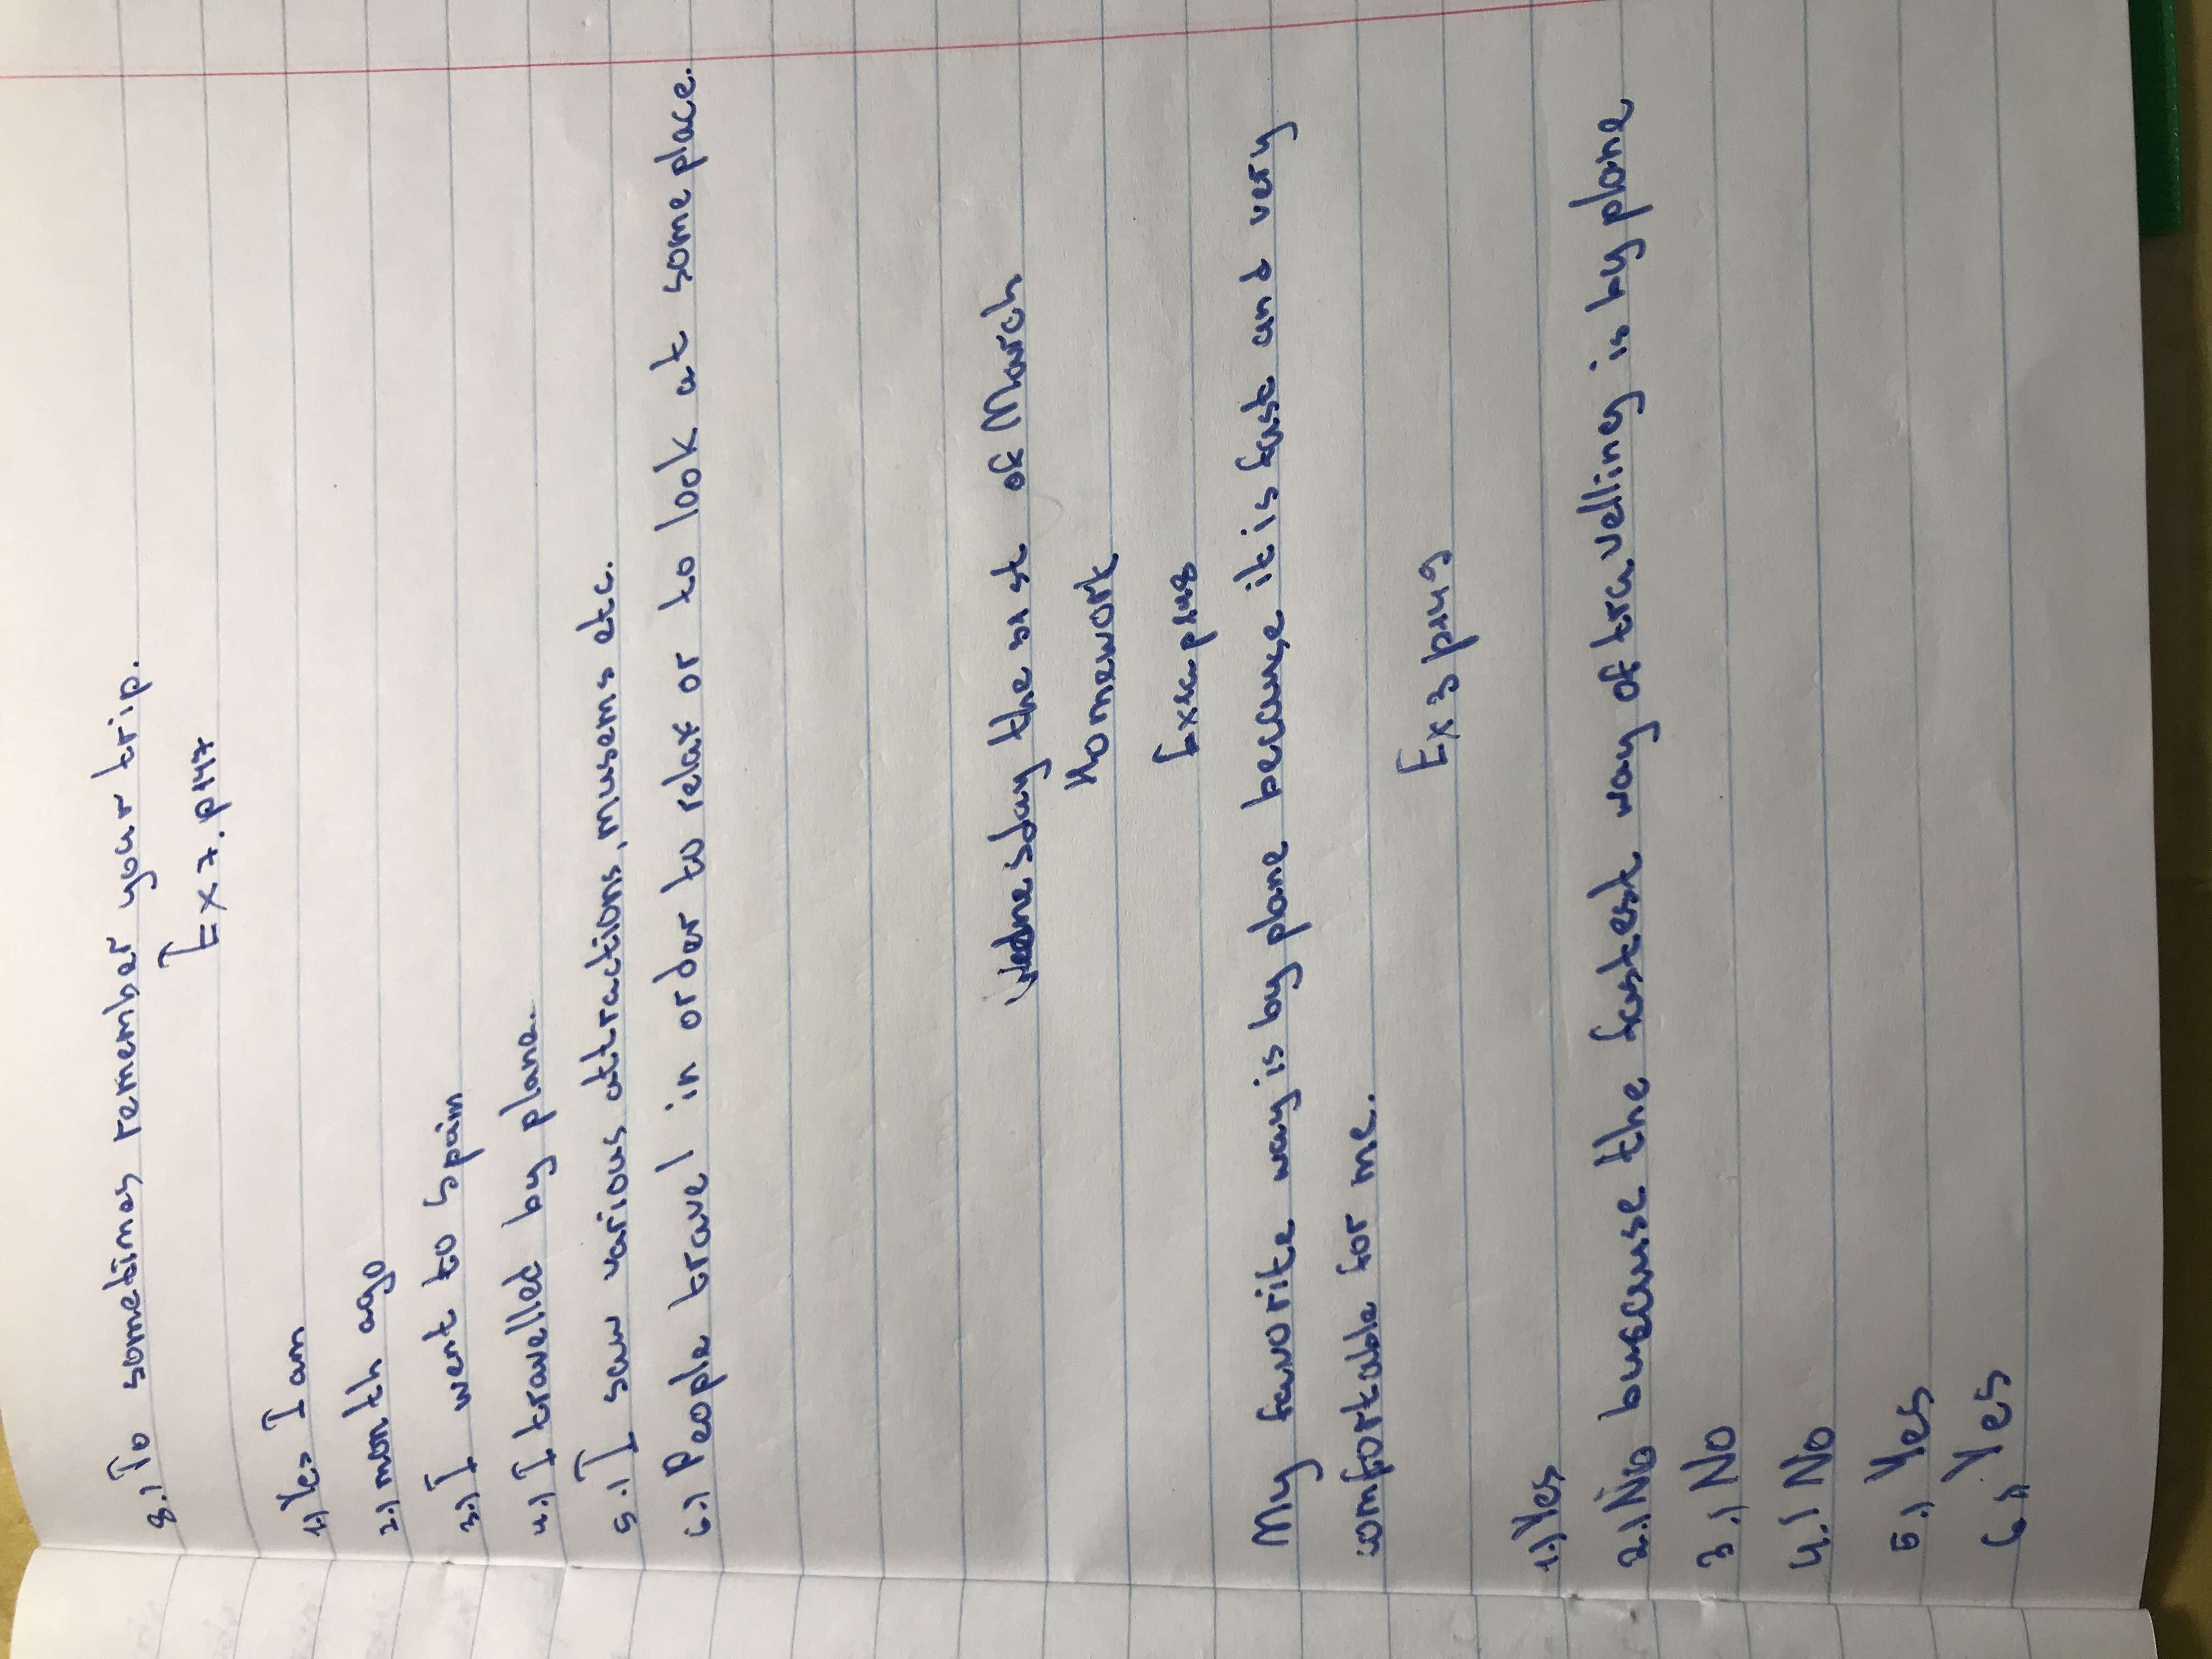 8.) To sometimes remember your trip.
Ex 7. p147
1.) Yes I am
2.) month ago
3.) I went to Spain
4.) I travelled by plane.
5.) I saw various attractions, musems etc.
6.) People travel in order to relax or to look at some place.
Wednesday the 31 st of March
Homework
My favorite way is by plane because it is fast and very
comfortable for me.
Ex 3 p149
1.) Yes
2.) No buecause the fastest way of travelling is by plane
3.) No
4.) No
5.) Yes
6.) Yes